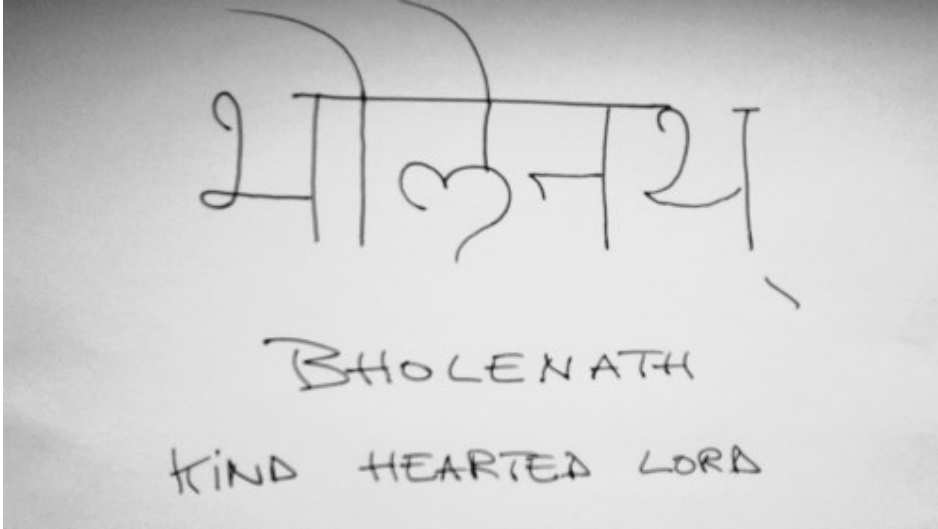 भोलेनथ्
BHOLENATH
KIND HEARTED LORD